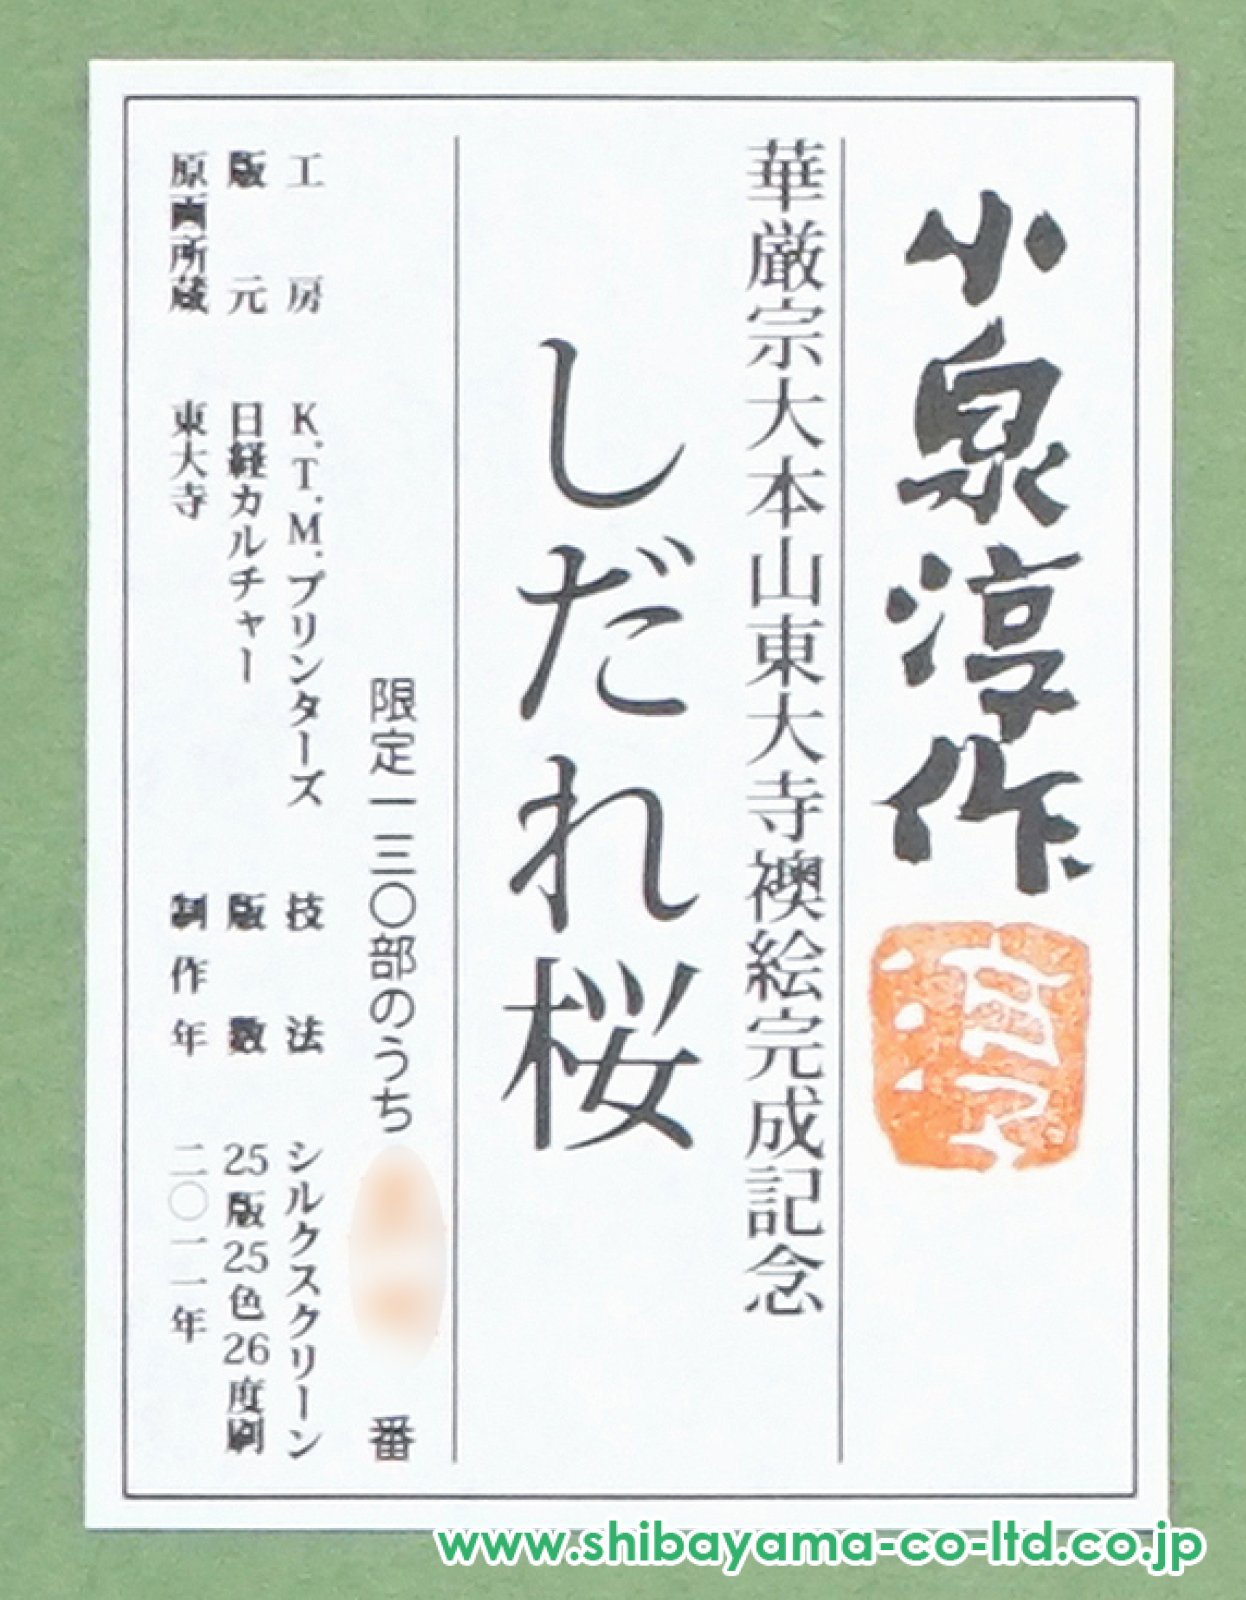 小泉淳作
華厳宗大本山東大寺襖絵完成記念
しだれ桜
限定一三〇部のうち 番
工房 K.T.M.プリンターズ 技法 シルクスクリーン
版元 日経カルチャー 版数 25版25色26度刷
原画所蔵 東大寺 制作年 二〇一一年
www.shibayama-co-ltd.co.jp